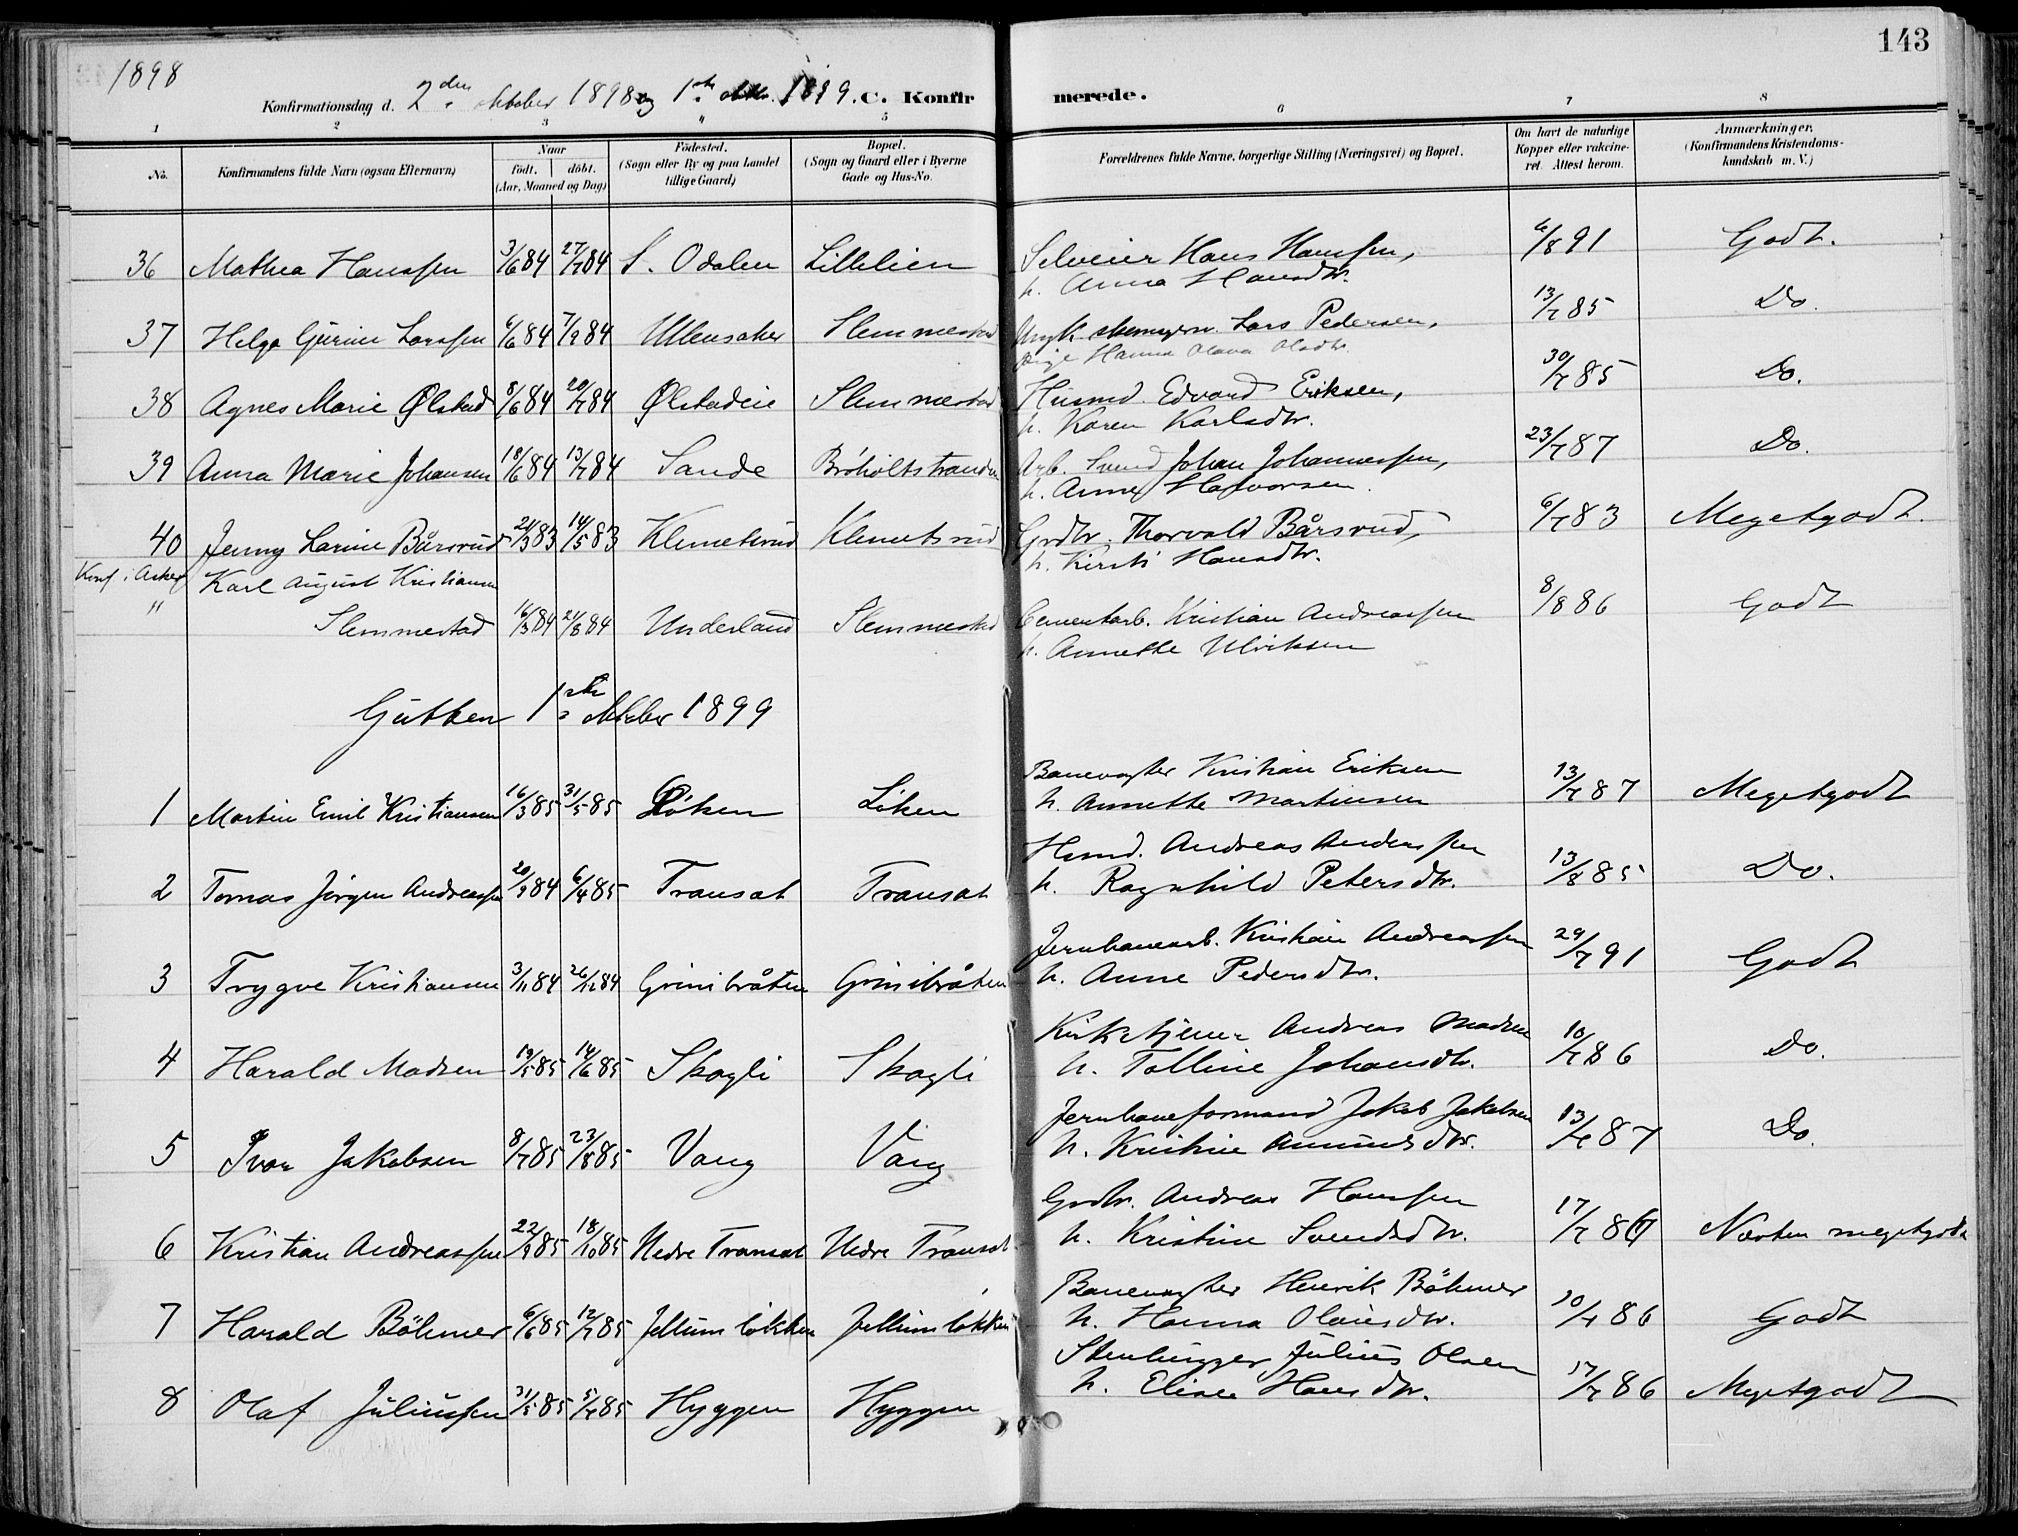 143
1898
Konfirmationsdag d. 2den oktober 1898 og 1ste oktbr. 1899. C. Konfirmerede.
1 2 3 4 5 6 7 8
No. Konfirmandens fulde Navn (ogsaa Efternavn) Naar födt. döbt. (Aar, Maaned og Dag) Födested. (Sogn eller By og paa Landet tillige Gaard) Bopæl. (Sogn og Gaard eller i Byerne Gade og Hus-No. Forældrenes fulde Navne, borgerlige Stilling (Næringsvei) og Bopæl. Om havt de naturlige Kopper eller vakcineret. Attest herom. Anmærkninger. (Konfirmandens Kristendomskundskab m. V.)
36 Mathea Hanssen 3/6 84 27/7 84 S. Odalen Lillelien Selveier Hans Hanssen, 4/8 91 Godt.
h. Anna Hansdtr.
37 Helga Gurine Larssen 6/6 84 7/9 84 Ullensaker Slemmestad Ungk. Lars Pedersen, 13/7 85 Do.
Pige Hanna Olava Olsdtr.
38 Agnes Marie Ølstad 8/6 84 20/7 84 Ølstadeie Slemmestad Husmd. Edvard Eriksen, 30/7 85 Do.
h. Karen Karlsdtr.
39 Anna Marie Johansen 18/6 84 13/7 84 Sande Bröholtstranden Arb. Svend Johan Johannessen, 23/7 87 Do.
h. Anne Halvorsen.
40 Jenny Larine Bårsrud 21/3 83 14/5 83 Klemetsrud Klemetsrud Grdbr. Thorvald Bårsrud, 6/7 83 Megetgodt.
h. Kirsti Hansdtr.
Konf. i Asker Karl August Kristiansen
" Slemmestad 16/3 84 21/8 84 Underland Slemmestad Cementarb. Kristian Andreassen 8/8 86 Godt
h. Annette Ulriksen
Gutter 1ste oktober 1899
1 Martin Emil Kristiansen 16/3 85 31/5 85 Löken Löken Banevogter Kristian Eriksen 13/7 87 Megetgodt
h. Annette Martinsen
2 Tomas Jörgen Andreassen 20/9 84 6/4 85 Transat Transat Husmd. Andreas Anderssen 13/8 85 Do.
h. Ragnhild Petersdtr.
3 Trygve Kristiansen 3/11 84 26/12 84 Grinibråten Grinibråten Jernbanearb. Kristian Andreassen 29/7 91 Godt
h. Anne Pedersdtr.
4 Harald Madsen 19/5 85 14/6 85 Skogli Skogli Kirketjener Andreas Madsen 10/7 86 Do.
h. Talline Johansdtr.
5 Ivar Jakobsen 8/7 85 23/8 85 Vang Vang Jernbaneformand Jakob Jakobsen 13/7 87 Do.
h. Kristine Amundsdtr.
6 Kristian Andreassen 22/9 85 18/10 85 Nedre Transat Nedre Transat Grdbr. Andreas Hanssen 17/7 86 Næsten megetgodt
h. Kristine Svendsdtr.
7 Harald Böhmer 6/6 85 12/7 85 Jellumlökken Jellumlökken Banevogter Henrik Böhmer 10/7 86 Godt
h. Hanna Olavesdtr.
8 Olaf Juliussen 31/5 85 5/7 85 Hyggen Hyggen Stenhugger Julius Olsen 17/7 86 Megetgodt
h. Elise Hansdtr.